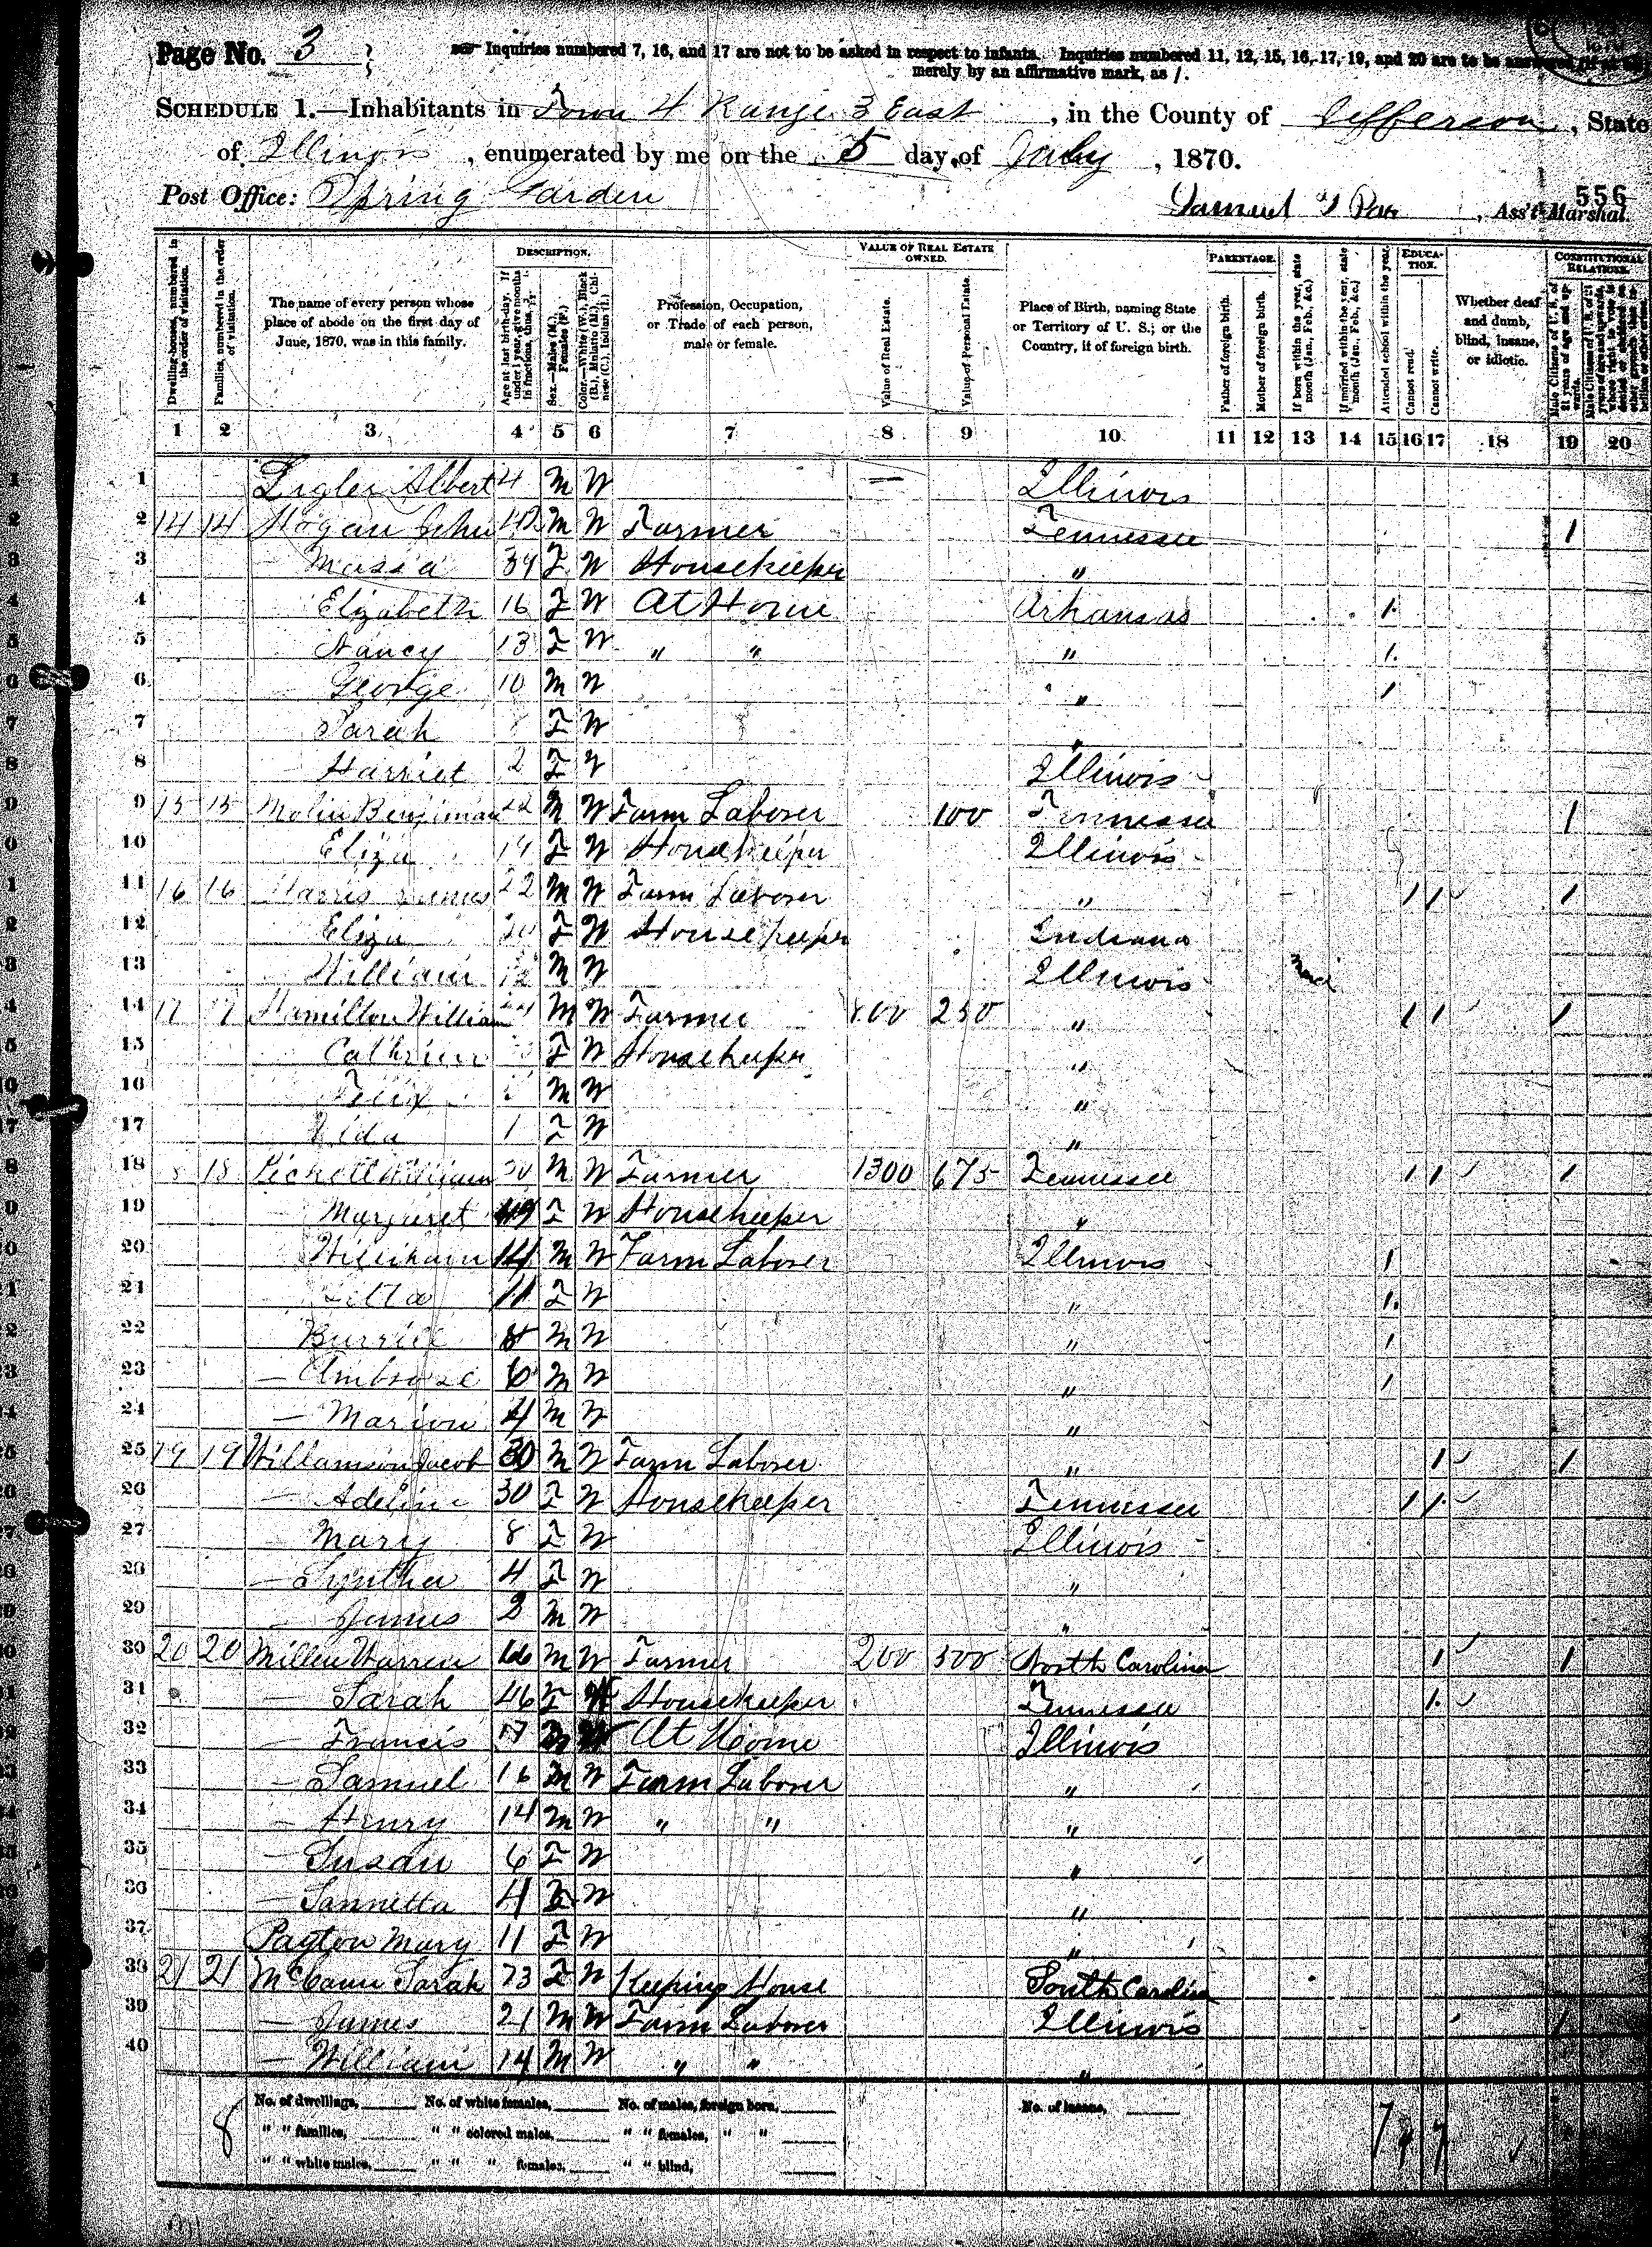 Page No. 3
Inquiries numbered 7, 16, and 17 are not to be asked in respect to infants. Inquiries numbered 11, 12, 15, 16, 17, 19, and 20 are to be answered
merely by an affirmative mark, as /.
SCHEDULE 1.—Inhabitants in Town 4 Range 3 East, in the County of Jefferson, State
of Illinois, enumerated by me on the 5 day of July, 1870.
Post Office: Spring Garden
556
Samuel, Ass't Marshal.
Dwelling-houses, numbered in the order of visitation.
Families, numbered in the order of visitation.
The name of every person whose place of abode on the first day of June, 1870, was in this family.
DESCRIPTION.
Age at last birth-day. If under 1 year, give months in fractions, thus,
Sex.—Males (M.), Females (F.)
Color.—White (W.), Black (B.), Mulatto (M.), Chinese (C.), Indian (I.)
Profession, Occupation, or Trade of each person, male or female.
VALUE OF REAL ESTATE OWNED.
Value of Real Estate.
Value of Personal Estate.
Place of Birth, naming State or Territory of U. S.; or the Country, if of foreign birth.
PARENTAGE.
Father of foreign birth.
Mother of foreign birth.
If born within the year, state month (Jan., Feb., &c.)
If married within the year, state month (Jan., Feb., &c.)
Attended school within the year.
EDUCATION.
Cannot read.
Cannot write.
Whether deaf and dumb, blind, insane, or idiotic.
CONSTITUTIONAL RELATIONS.
Male Citizens of U. S. of 21 years of age and upwards.
1 2 3 4 5 6 7 8 9 10 11 12 13 14 15 16 17 18 19 20
1 Albert 4 M W Illinois
2 14 14 Hogan John 42 M W Farmer Tennessee 1
3 39 F W Housekeeper "
4 Elizabeth 16 F W At Home Arkansas 1
5 Nancy 13 F W " " " 1
6 George 10 M W " 1
7 Sarah F W "
8 Harriet 2 F W Illinois
9 15 15 Benjiman 22 M W Farm Laborer 100 Tennessee 1
10 Eliza 19 F W Housekeeper Illinois
11 16 16 Harris 22 M W Farm Laborer " 1 1 1
12 Eliza 20 F W Housekeeper Indiana
13 William M W Illinois
14 17 17 Hamilton William M W Farmer 800 250 " 1 1 1
15 Cathrine F W Housekeeper "
16 Felix M W "
17 1 F W "
18 18 Pickett William M W Farmer 1300 675 Tennessee 1 1 1
19 Margaret 49 F W Housekeeper "
20 14 M W Farm Laborer Illinois 1
21 11 F W " 1
22 8 M W " 1
23 — Ambrose 6 M W " 1
24 — Marion 4 M W "
25 19 19 Williamson Jacob 30 M W Farm Laborer " 1 1
26 — Adeline 30 F W Housekeeper Tennessee 1 1
27 Mary 8 F W Illinois
28 — Synthia 4 F W "
29 — James 2 M W "
30 20 20 Warren 66 M W Farmer 200 300 North Carolina 1 1
31 — Sarah 46 F W Housekeeper Tennessee 1
32 — Francis 17 M W At Home Illinois
33 — Samuel 16 M W Farm Laborer "
34 — Henry 14 M W " " "
35 — Susan 6 F W "
36 — 4 F W "
37 Mary 11 F W "
38 21 21 McCann Sarah 73 F W Keeping House South Carolina
39 — James 21 M W Farm Laborer Illinois 1
40 — William 14 M W " " "
8
No. of dwellings, No. of white females, No. of males, foreign born, No. of insane,
" " families, " " colored males, " " females, " "
" " white males, " " " females, " " blind,